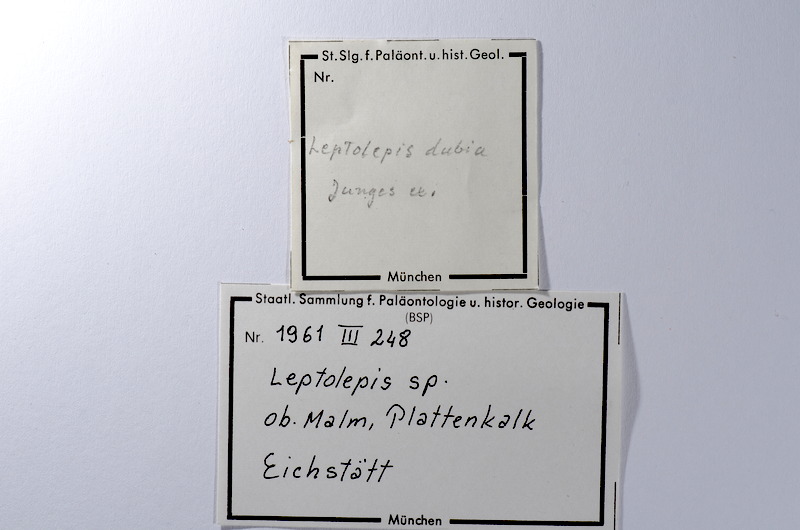 St. Slg. f. Paläont. u. hist. Geol.
Nr.
Leptolepis dubia
Junges ex.
München
Staatl. Sammlung f. Paläontologie u. histor. Geologie
(BSP)
Nr. 1961 III 248
Leptolepis sp.
ob. Malm, Plattenkalk
Eichstätt
München